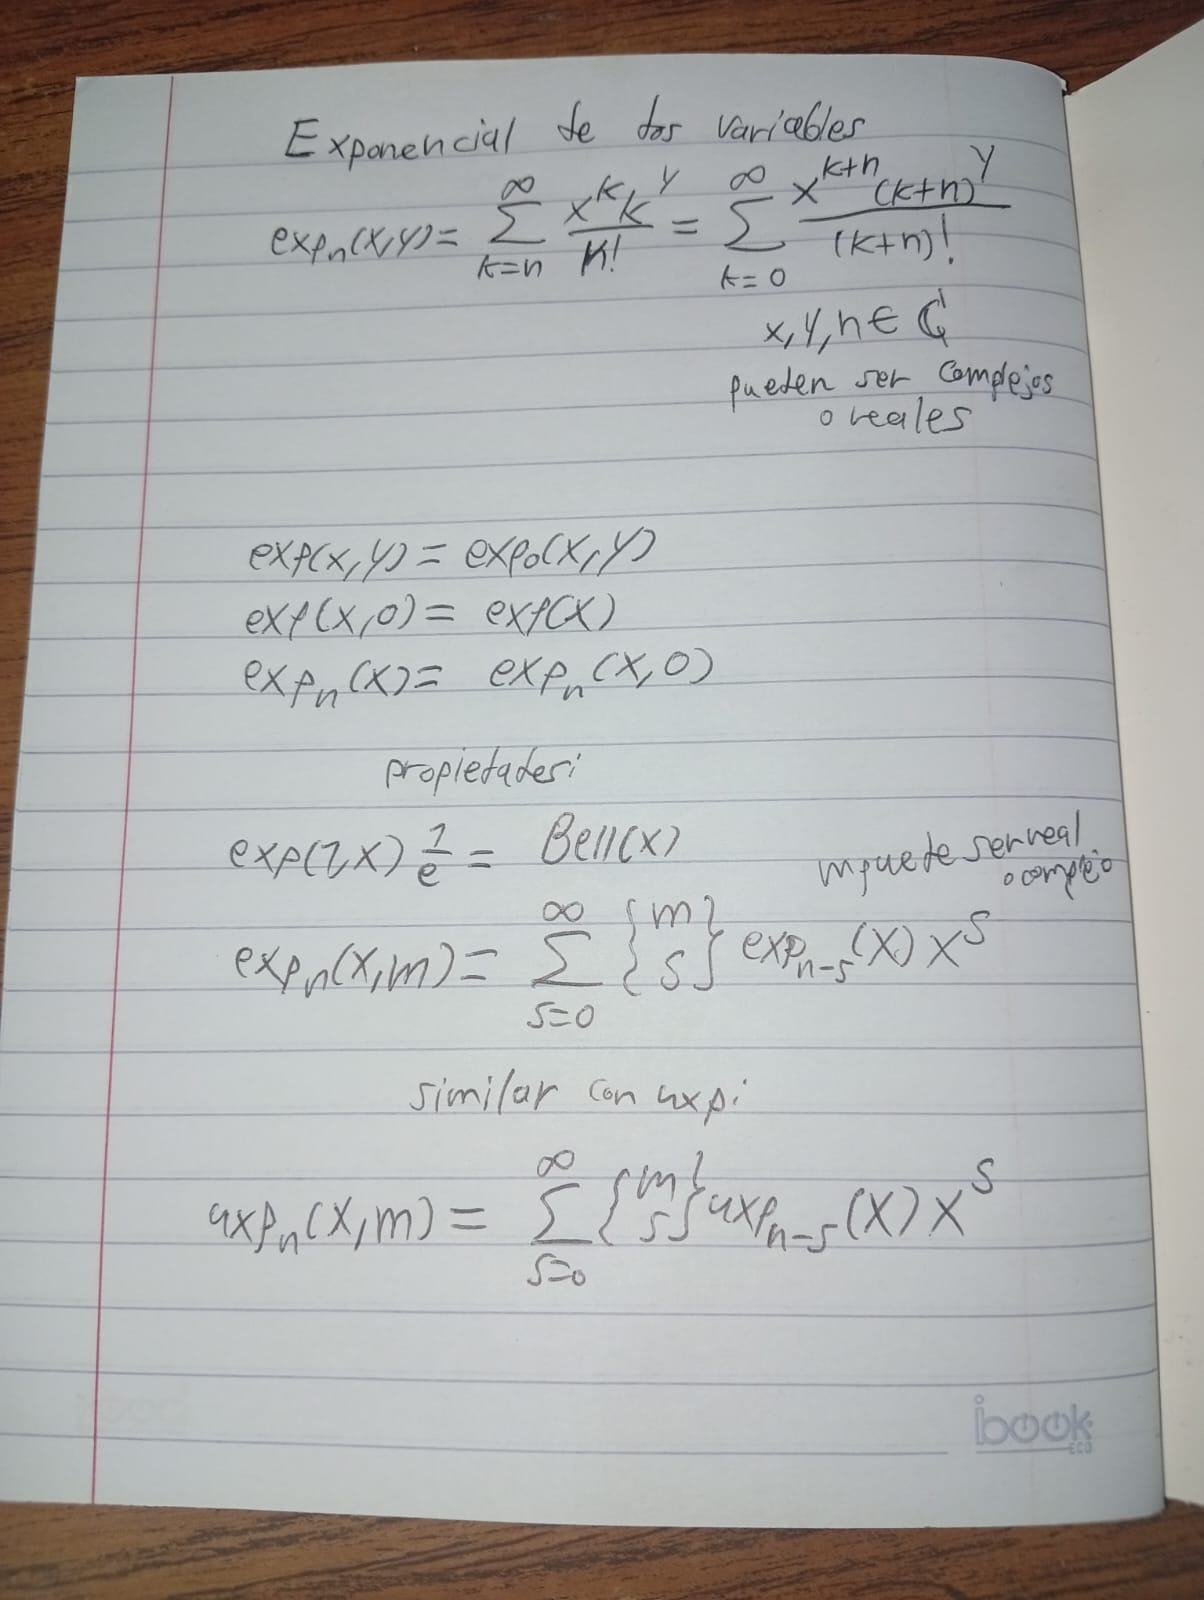 Exponencial de dos variables
expₙ(x,y)= ∑_{k=n}^{∞} x^k k^y / k! = ∑_{k=0}^{∞} x^{k+n} (k+n)^y / (k+n)!
x,y,n∈ ℂ
pueden ser complejos
o reales
exp(x,y) = exp₀(x,y)
exp(x,0) = exp(x)
expₙ(x)= expₙ(x,0)
propiedades:
exp(1,x) 1/e = Bell(x)
m puede ser real
o complejo
expₙ(x,m) = ∑_{s=0}^{∞} {m s} exp_{n-s}(x) x^s
similar con uxp:
uxpₙ(x,m) = ∑_{s=0}^{∞} {m s} uxp_{n-s}(x) x^s
ibook
ECO